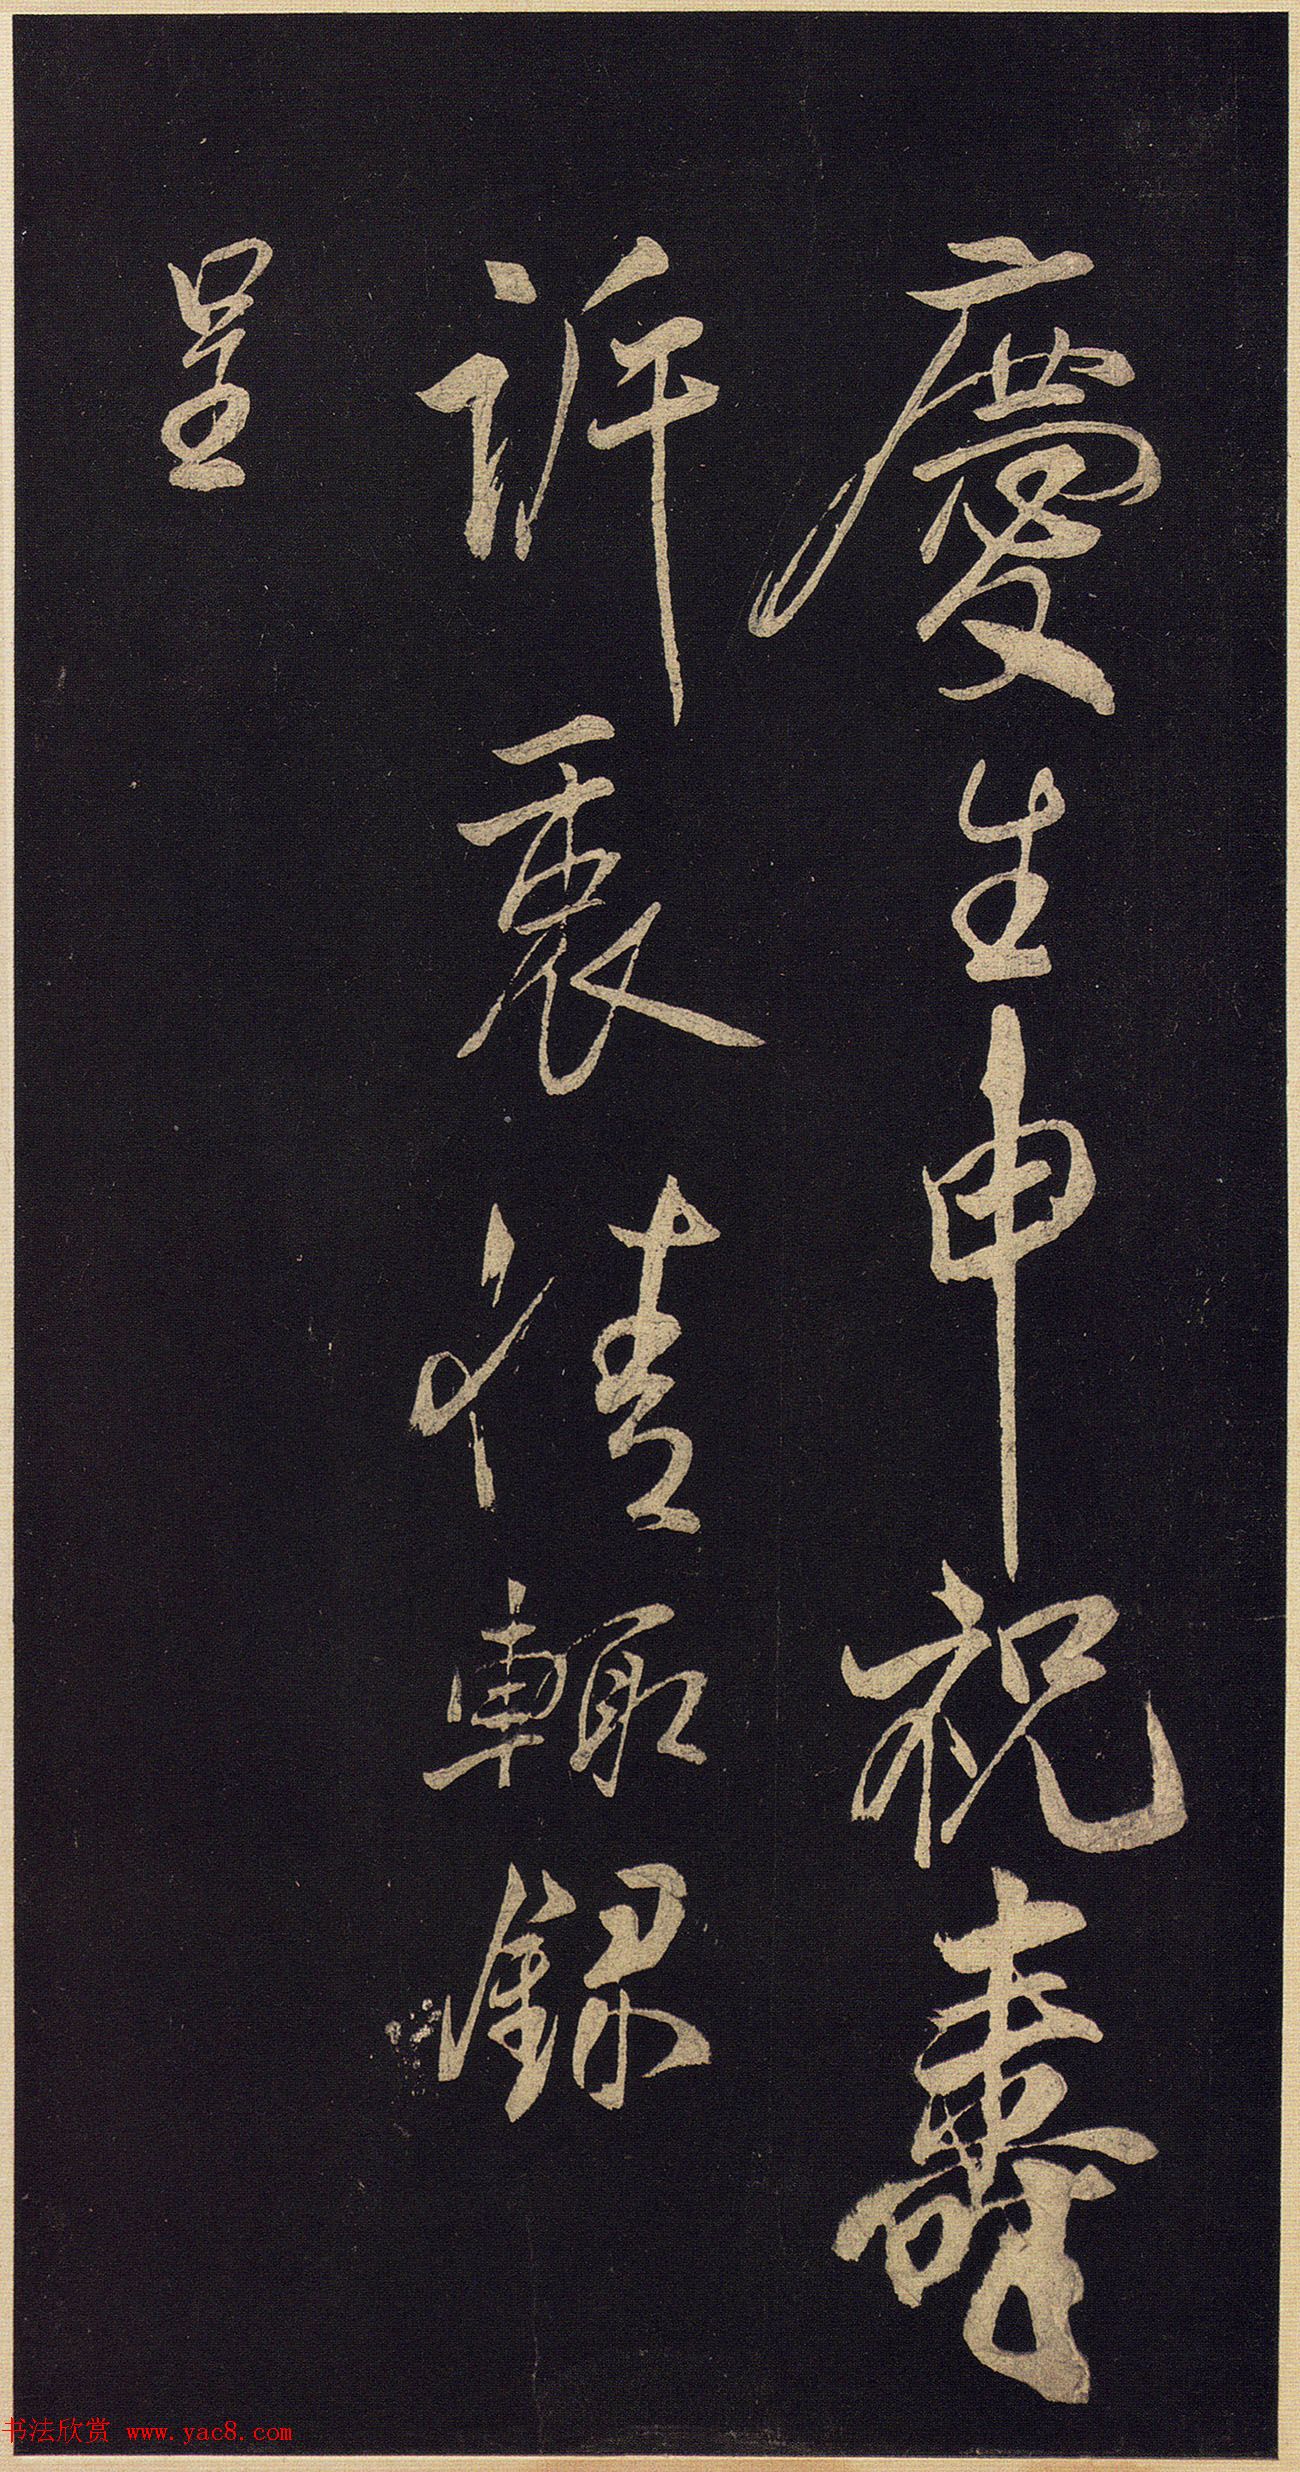 慶生申祝壽
訴衷情輒録
呈
书法欣赏 www.yac8.com